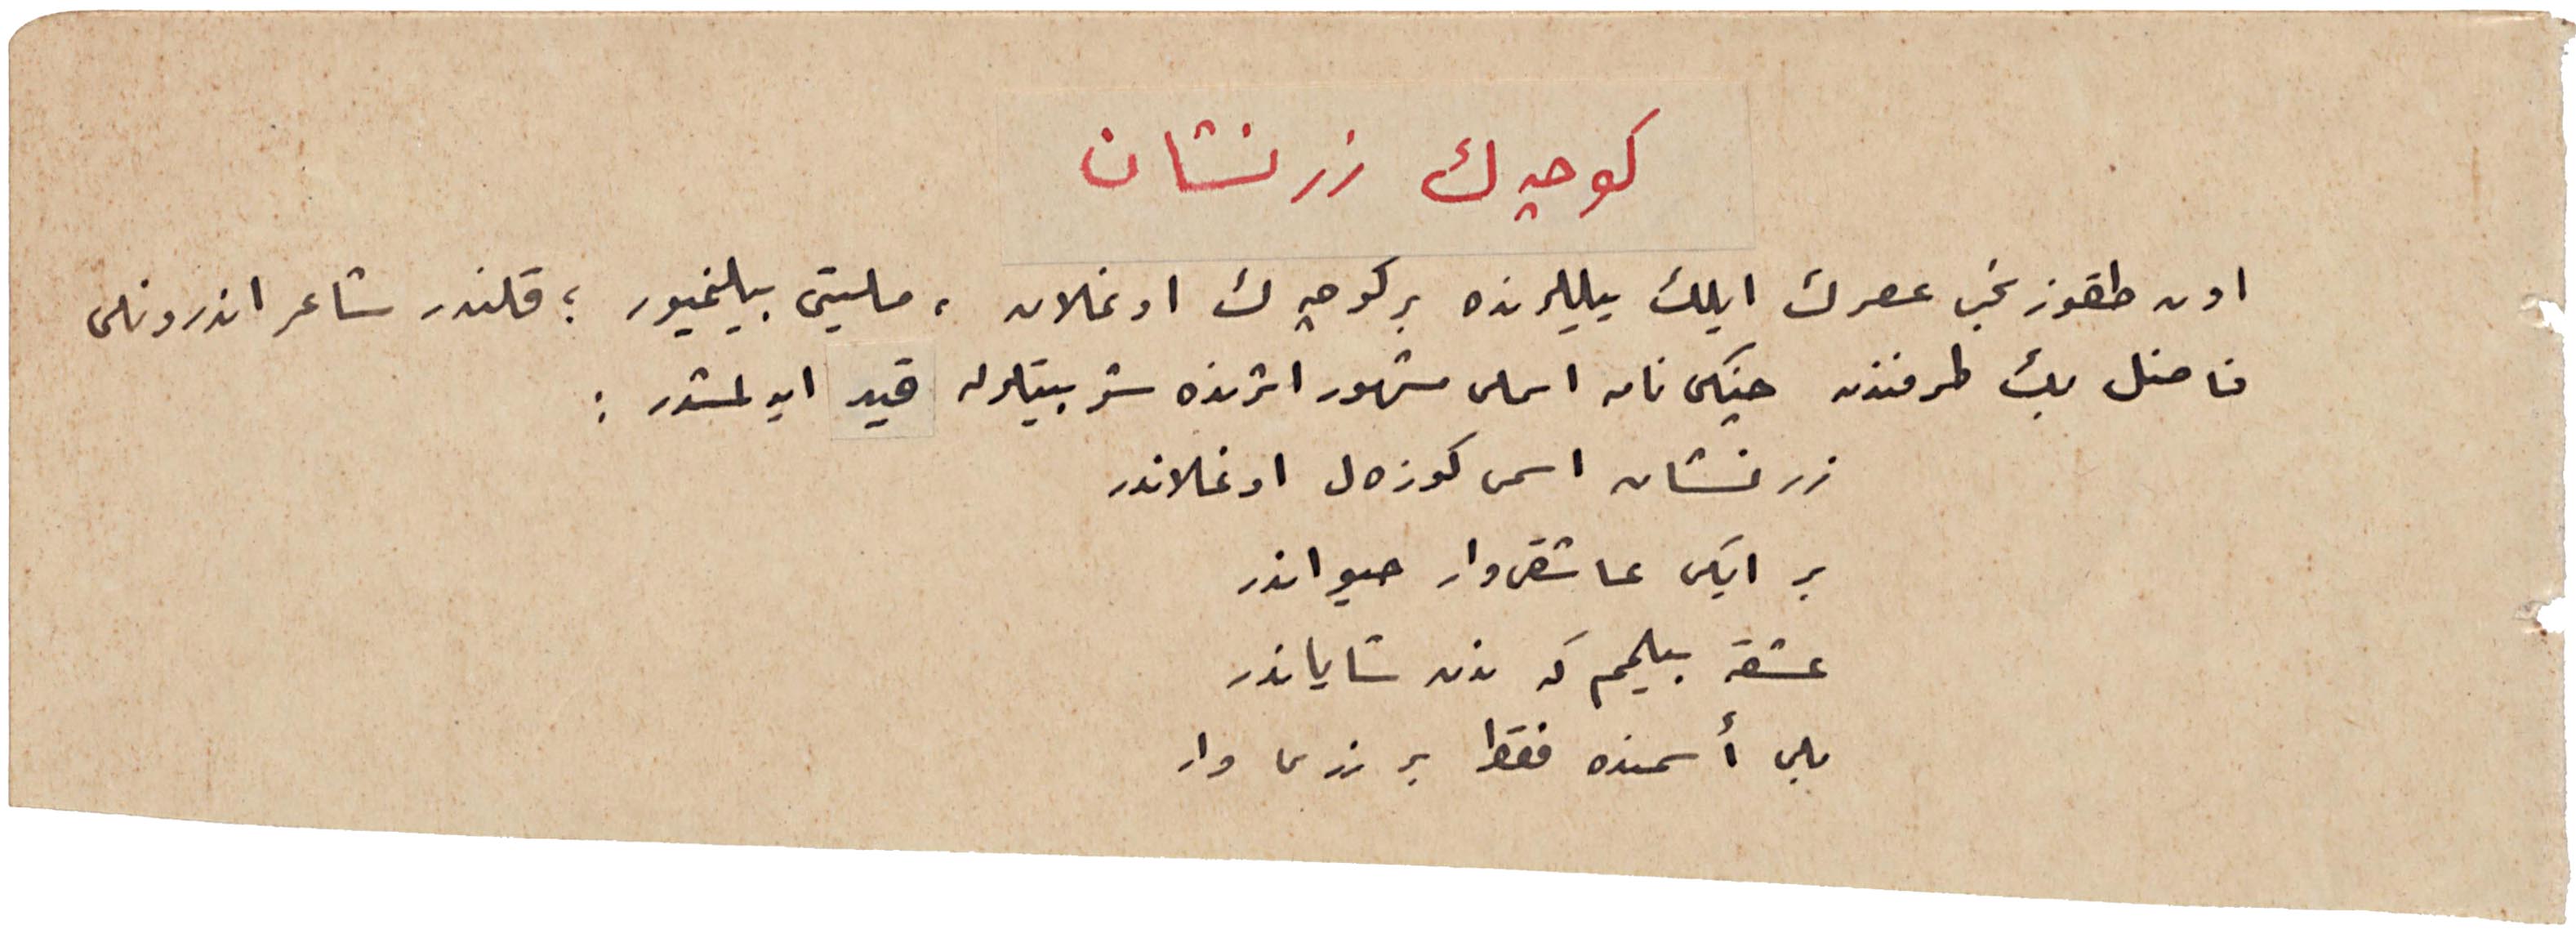 كوچه‌ك زرنشان
اون طقوزنجی عصرك ایلك ییللرنده بر كوچه‌ك اوغلان ، ملیتی بیلنمیور ؛ قلندر شاعر اندرونلی
فاضل بك طرفندن چنكی نامه اسملی مشهور اثرنده شو بیتلرله قید ایدلمشدر :
زرنشان اسمی كوزه‌ل اوغلاندر
بر ایكی عاشقی وار حیواندر
عشقه بیلمم كه نه‌دن شایاندر
بلی أسمنده فقط بر زری وار